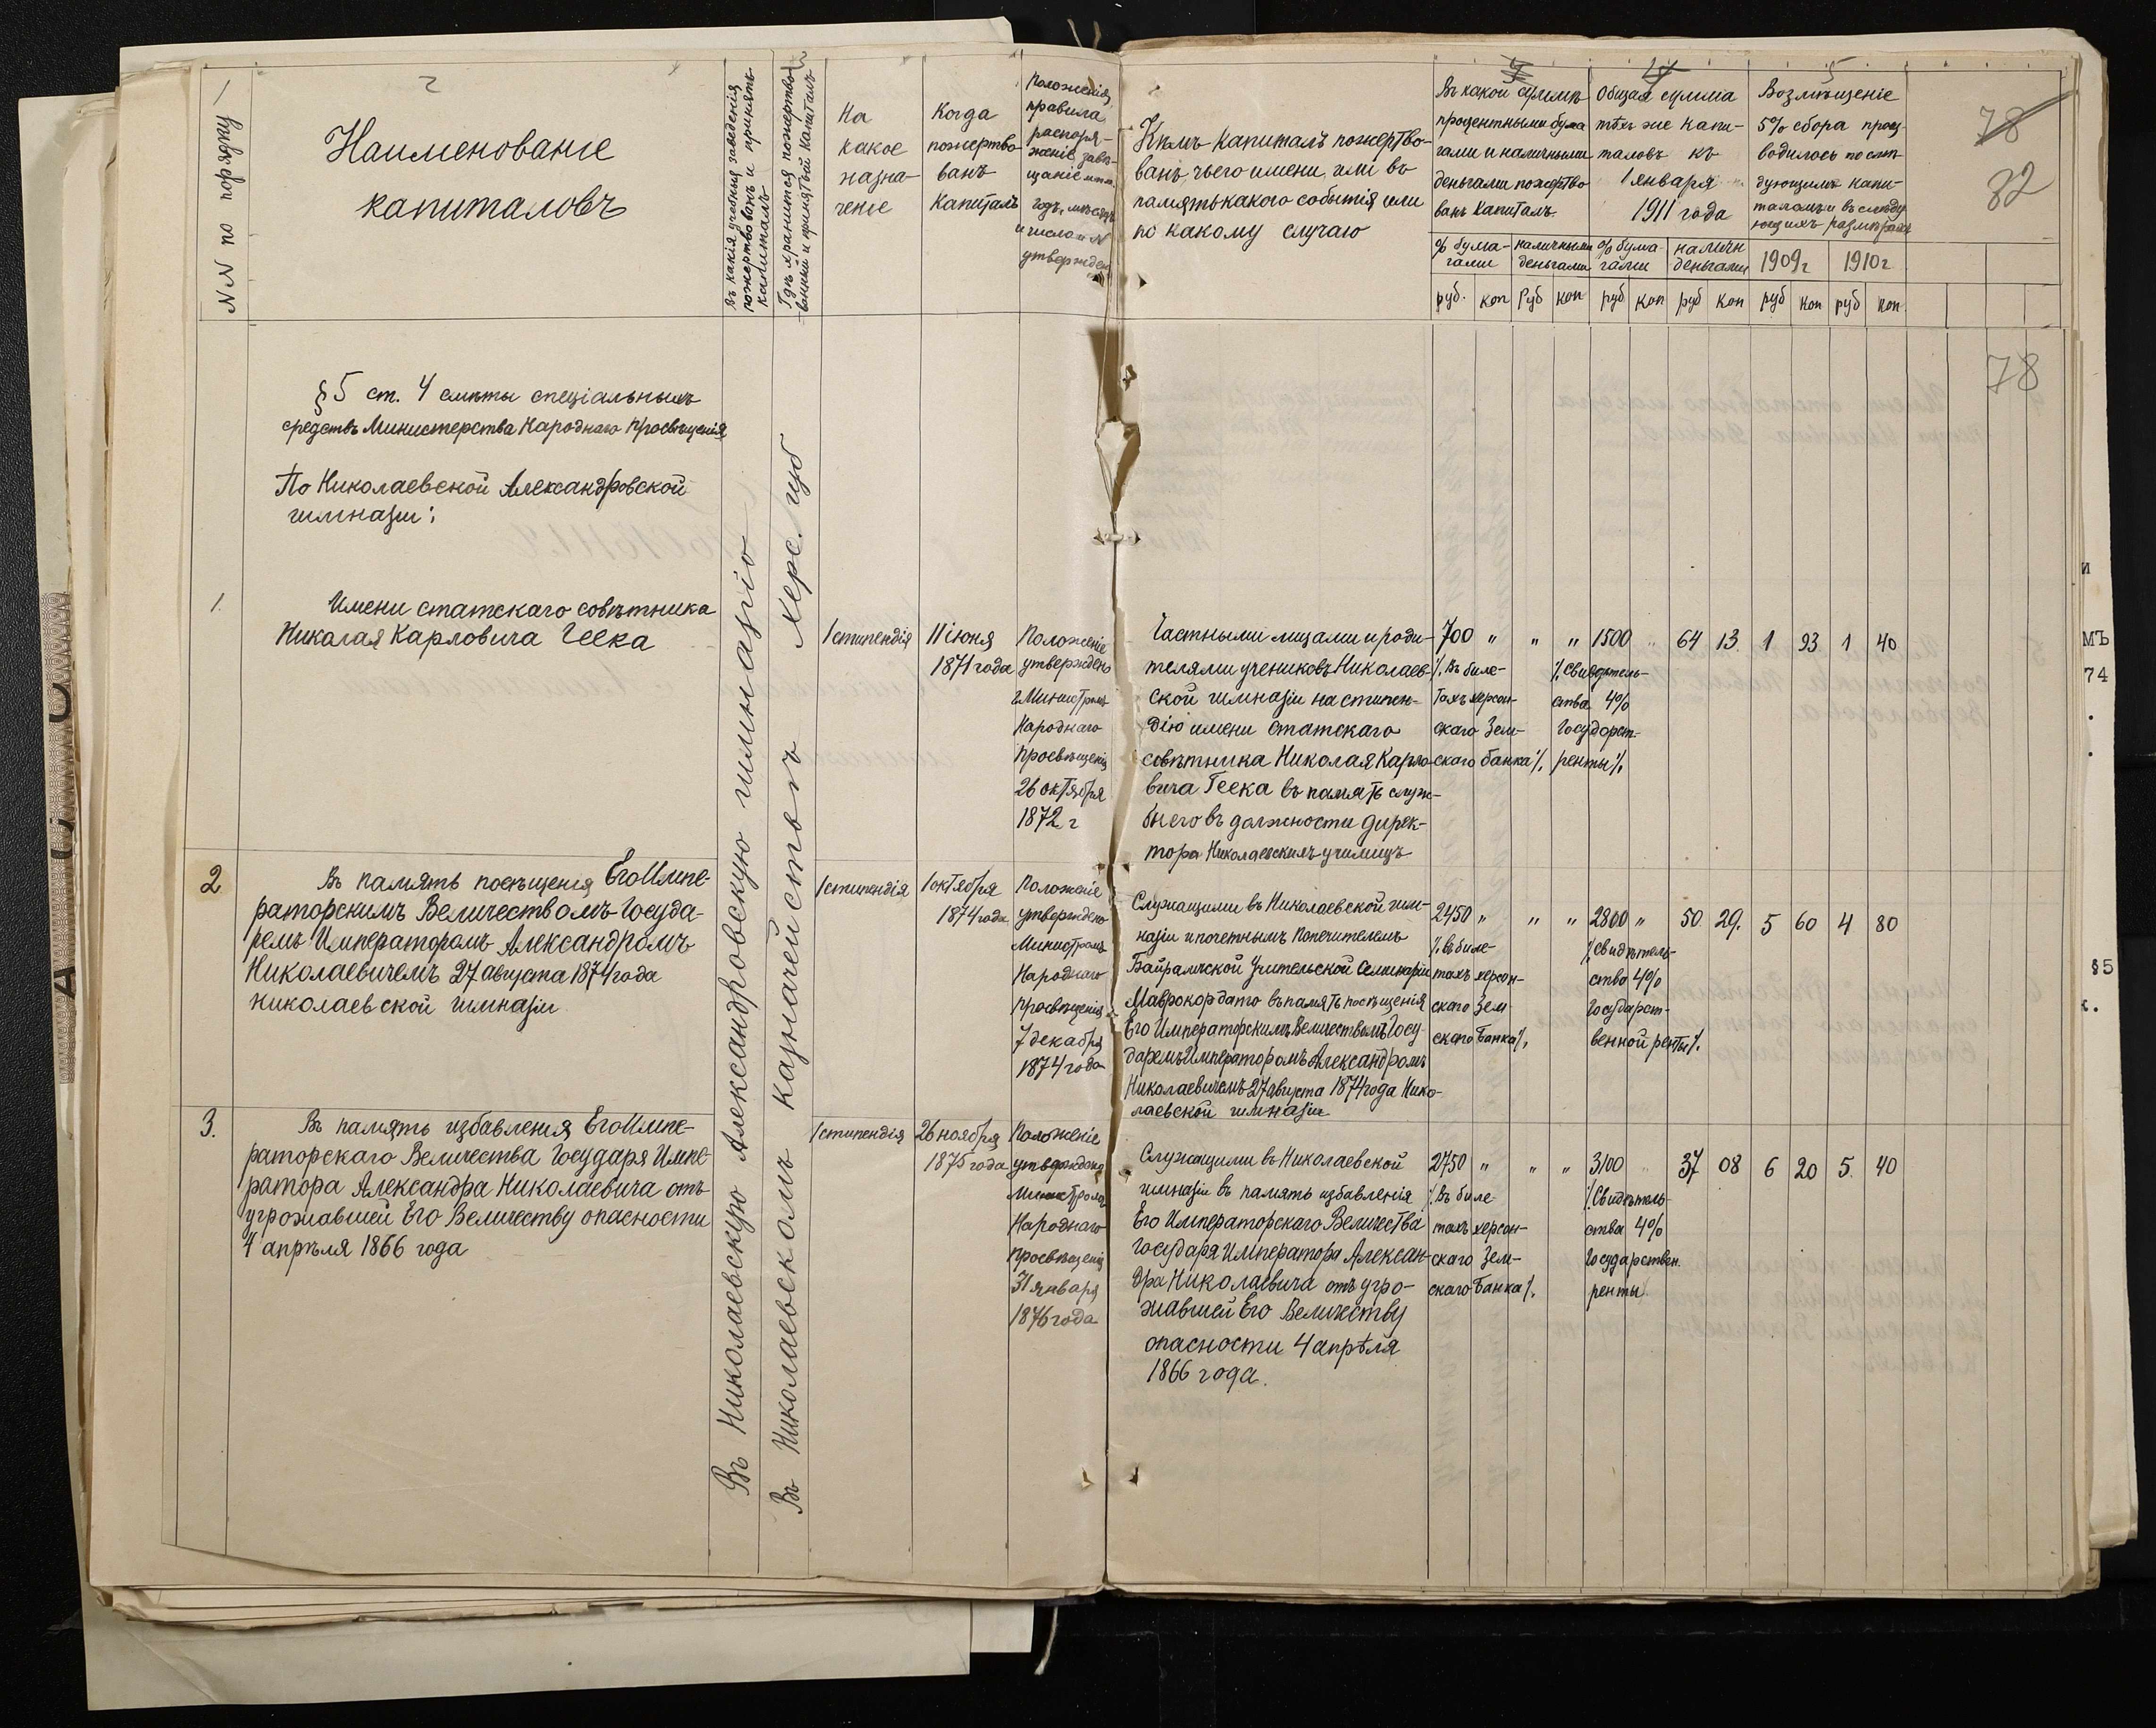 NN по порядку
Наименованіе
капиталовъ
Въ какія учебныя заведенія
пожертвованъ и принятъ
капиталъ
Гдѣ хранится пожертво-
ванный и принятый капиталъ
На
какое
назна-
ченіе
Когда
пожертво-
ванъ
капиталъ
Положенія,
правила
распоря-
женіе, завѣ-
щаніе
годъ, мѣсяцъ
и число и N
утвержден
Кѣмъ капиталъ пожертво-
ванъ, чьего имени, или въ
память какого событія или
по какому случаю
Въ какой суммѣ
процентными бума
гами и наличными
деньгами пожертво
ванъ капиталъ.
Общая сумма
тѣхъ же капи-
таловъ къ
1 января
1911 года
Возмѣщеніе
5% сбора произ-
водилось по слѣ-
дующимъ капи-
таламъ и въ слѣду
ющихъ размѣрахъ
% бума-
гами
наличными
деньгами
% бума-
гами
наличн
деньгами
1909 г
1910 г
руб. коп руб коп руб коп руб коп руб коп руб коп.
78
82
78
§5 ст. 4 смѣты спеціальныхъ
средствъ Министерства Народнаго Просвѣщенія
По Николаевской Александровской
гимназіи:
Въ Николаевскую Александровскую гимназію
Въ Николаевскомъ казначействѣ Херс. губ
1.
Имени статскаго совѣтника
Николая Карловича Геека
1 стипендія
11 іюня
1871 года
Положеніе
утверждено
г. Министромъ
Народнаго
Просвѣщенія
26 октября
1872 г
Частными лицами и роди-
телями учениковъ Николаев-
ской гимназіи на стипен-
дію имени статскаго
совѣтника Николая Карло-
вича Геека въ память служ-
бы его въ должности дирек-
тора Николаевскихъ училищъ
700 " " " 1500 " 64 13. 1 93 1 40
/. въ биле-
тахъ херсон-
скаго Зем-
скаго банка /.
/. свидѣтель-
ства 4%
Государст.
ренты /.
2
Въ память посѣщенія Его Импе-
раторскимъ Величествомъ Госуда-
ремъ Императоромъ Александромъ
Николаевичемъ 27 августа 1874 года
николаевской гимназіи
1 стипендія
1 октября
1874 года
Положеніе
утверждено
Министромъ
Народнаго
Просвѣщенія
7 декабря
1874 года
Служащими въ Николаевской гим-
назіи и почетнымъ попечителемъ
Байрамчской Учительской Семинаріи
Маврокордато въ память посѣщенія
Его Императорскимъ Величествомъ Госу-
даремъ Императоромъ Александромъ
Николаевичемъ 27 августа 1874 года Нико-
лаевской гимназіи
2450 " " " 2800 " 50. 29. 5 60 4 80
/. въ биле-
тахъ херсон-
скаго Зем-
скаго Банка /.
/. свидѣтель-
ства 4%
Государст-
венной ренты /.
3.
Въ память избавленія Его Импе-
раторскаго Величества Государя Импе-
ратора Александра Николаевича отъ
угрожавшей Его Величеству опасности
4 апрѣля 1866 года
1 стипендія
26 ноября
1875 года
Положеніе
утверждено
Министромъ
Народнаго
Просвѣщенія
31 января
1876 года
Служащими въ Николаевской
гимназіи въ память избавленія
Его Императорскаго Величества
Государя Императора Алексан-
дра Николаевича отъ угро-
жавшей Его Величеству
опасности 4 апрѣля
1866 года.
2750 " " " 3100 " 37 08 6 20 5. 40
/. въ биле-
тахъ херсон-
скаго Зем-
скаго Банка /.
/. Свидѣтель-
ства 4%
Государствен.
ренты
и
МЪ
74
§5